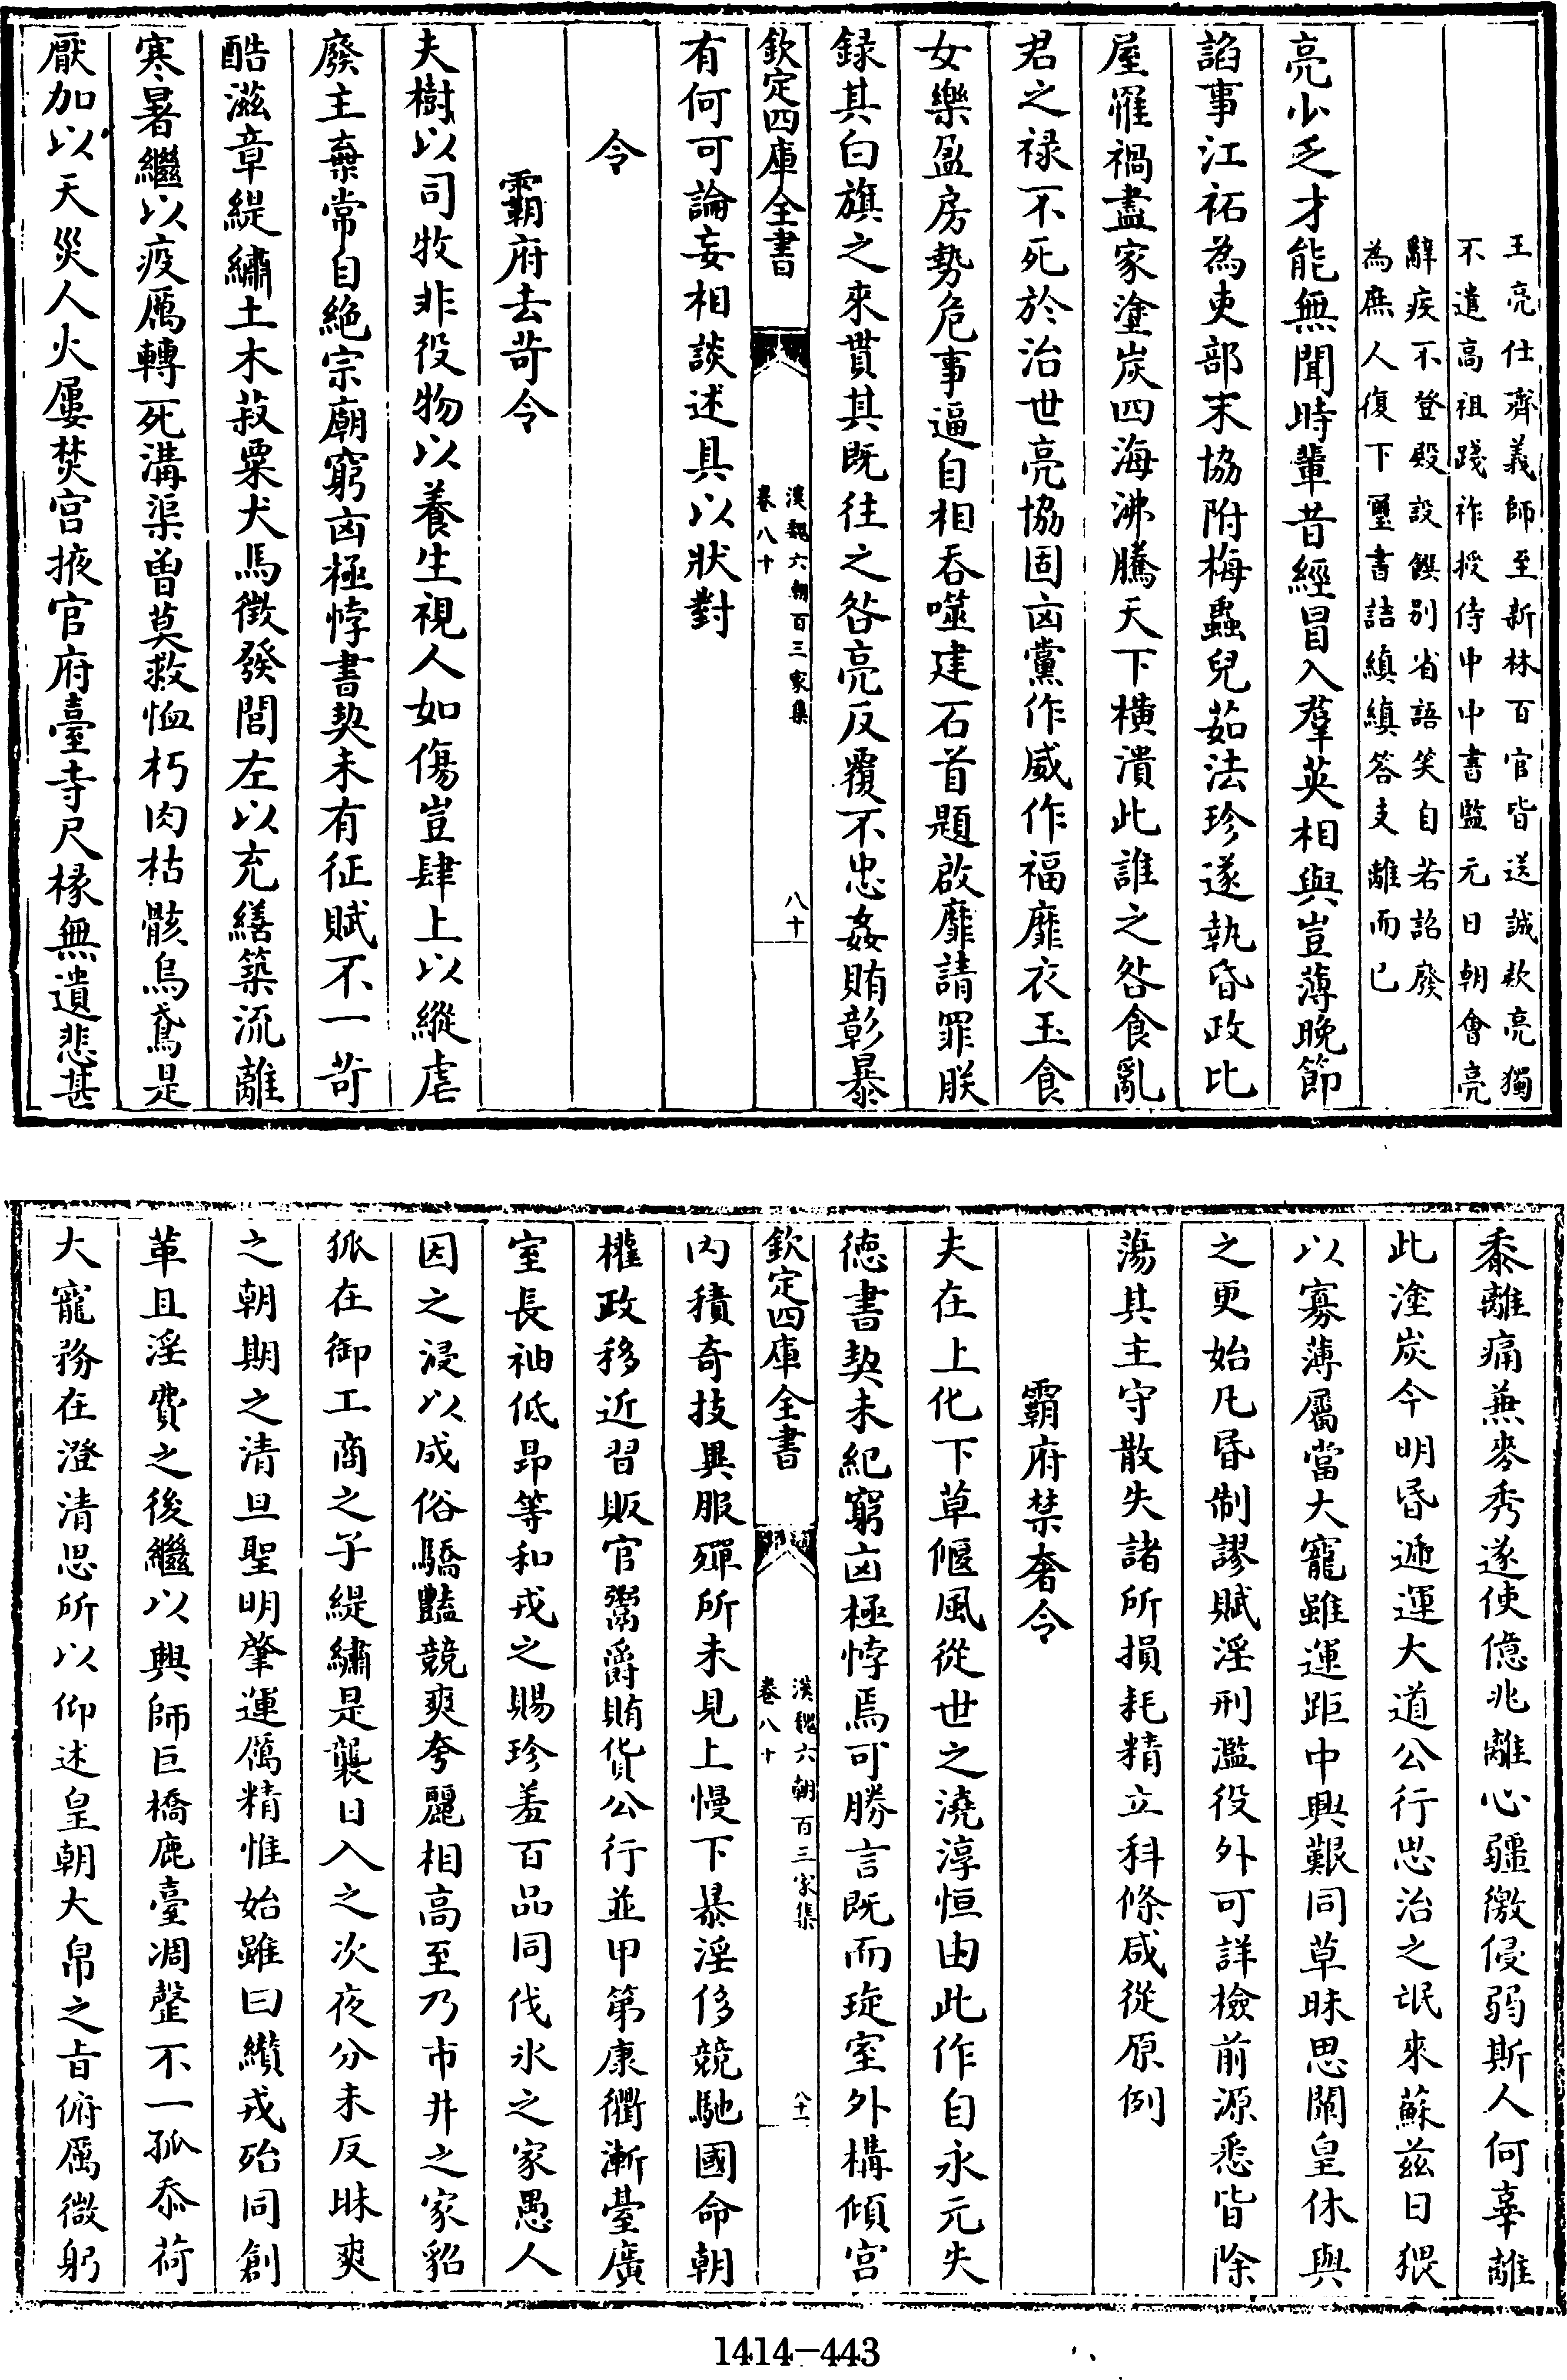 王亮仕齊義師至新林百官皆送誠欵亮獨
不遣高祖踐祚授侍中中書監元日朝會亮
辭疾不登殿設饌别省語笑自若詔廢
為庶人復下璽書詰縝縝答支離而已
亮少乏才能無聞時輩昔經冒入羣英相與豈薄晚節
諂事江祏為吏部末協附梅蟲兒茹法珍遂執昏政比
屋罹禍盡家塗炭四海沸騰天下横潰此誰之咎食亂
君之禄不死於治世亮協固凶黨作威作福靡衣玉食
女樂盈房勢危事逼自相吞噬建石首題啟靡請罪朕
録其白旗之來貰其既往之咎亮反覆不忠姦賄彰暴
欽定四庫全書
漢魏六朝百三家集
卷八十
八十
有何可論妄相談述具以狀對
令
霸府去苛令
夫樹以司牧非役物以養生視人如傷豈肆上以縱虐
廢主棄常自絶宗廟窮凶極悖書契未有征賦不一苛
酷滋章緹繡土木菽粟犬馬徵發閭左以充繕築流離
寒暑繼以疫厲轉死溝渠曽莫救恤朽肉枯骸烏鳶是
厭加以天災人火屢焚宫掖官府臺寺尺椽無遺悲甚
黍離痛兼麥秀遂使億兆離心疆徼侵弱斯人何辜離
此塗炭今明昏遞運大道公行思治之氓來蘇兹日猥
以寡薄屬當大寵雖運距中興艱同草昧思闡皇休與
之更始凡昏制謬賦淫刑濫役外可詳檢前源悉皆除
蕩其主守散失諸所損耗精立科條咸從原例
霸府禁奢令
夫在上化下草偃風從世之澆淳恒由此作自永元失
德書契未紀窮凶極悖焉可勝言既而琁室外構傾宫
欽定四庫全書
漢魏六朝百三家集
卷八十
八十一
内積奇技異服殫所未見上慢下暴淫侈競馳國命朝
權政移近習販官鬻爵賄貨公行並甲第康衢漸臺廣
室長袖低昂等和戎之賜珍羞百品同伐氷之家愚人
因之浸以成俗驕豔競爽夸麗相高至乃市井之家貂
狐在御工商之子緹繡是襲日入之次夜分未反昧爽
之朝期之清旦聖明肇運厲精惟始雖曰纘戎殆同創
革且淫費之後繼以興師巨橋鹿臺凋罄不一孤忝荷
大寵務在澄清思所以仰述皇朝大帛之旨俯厲微躬
1414-443